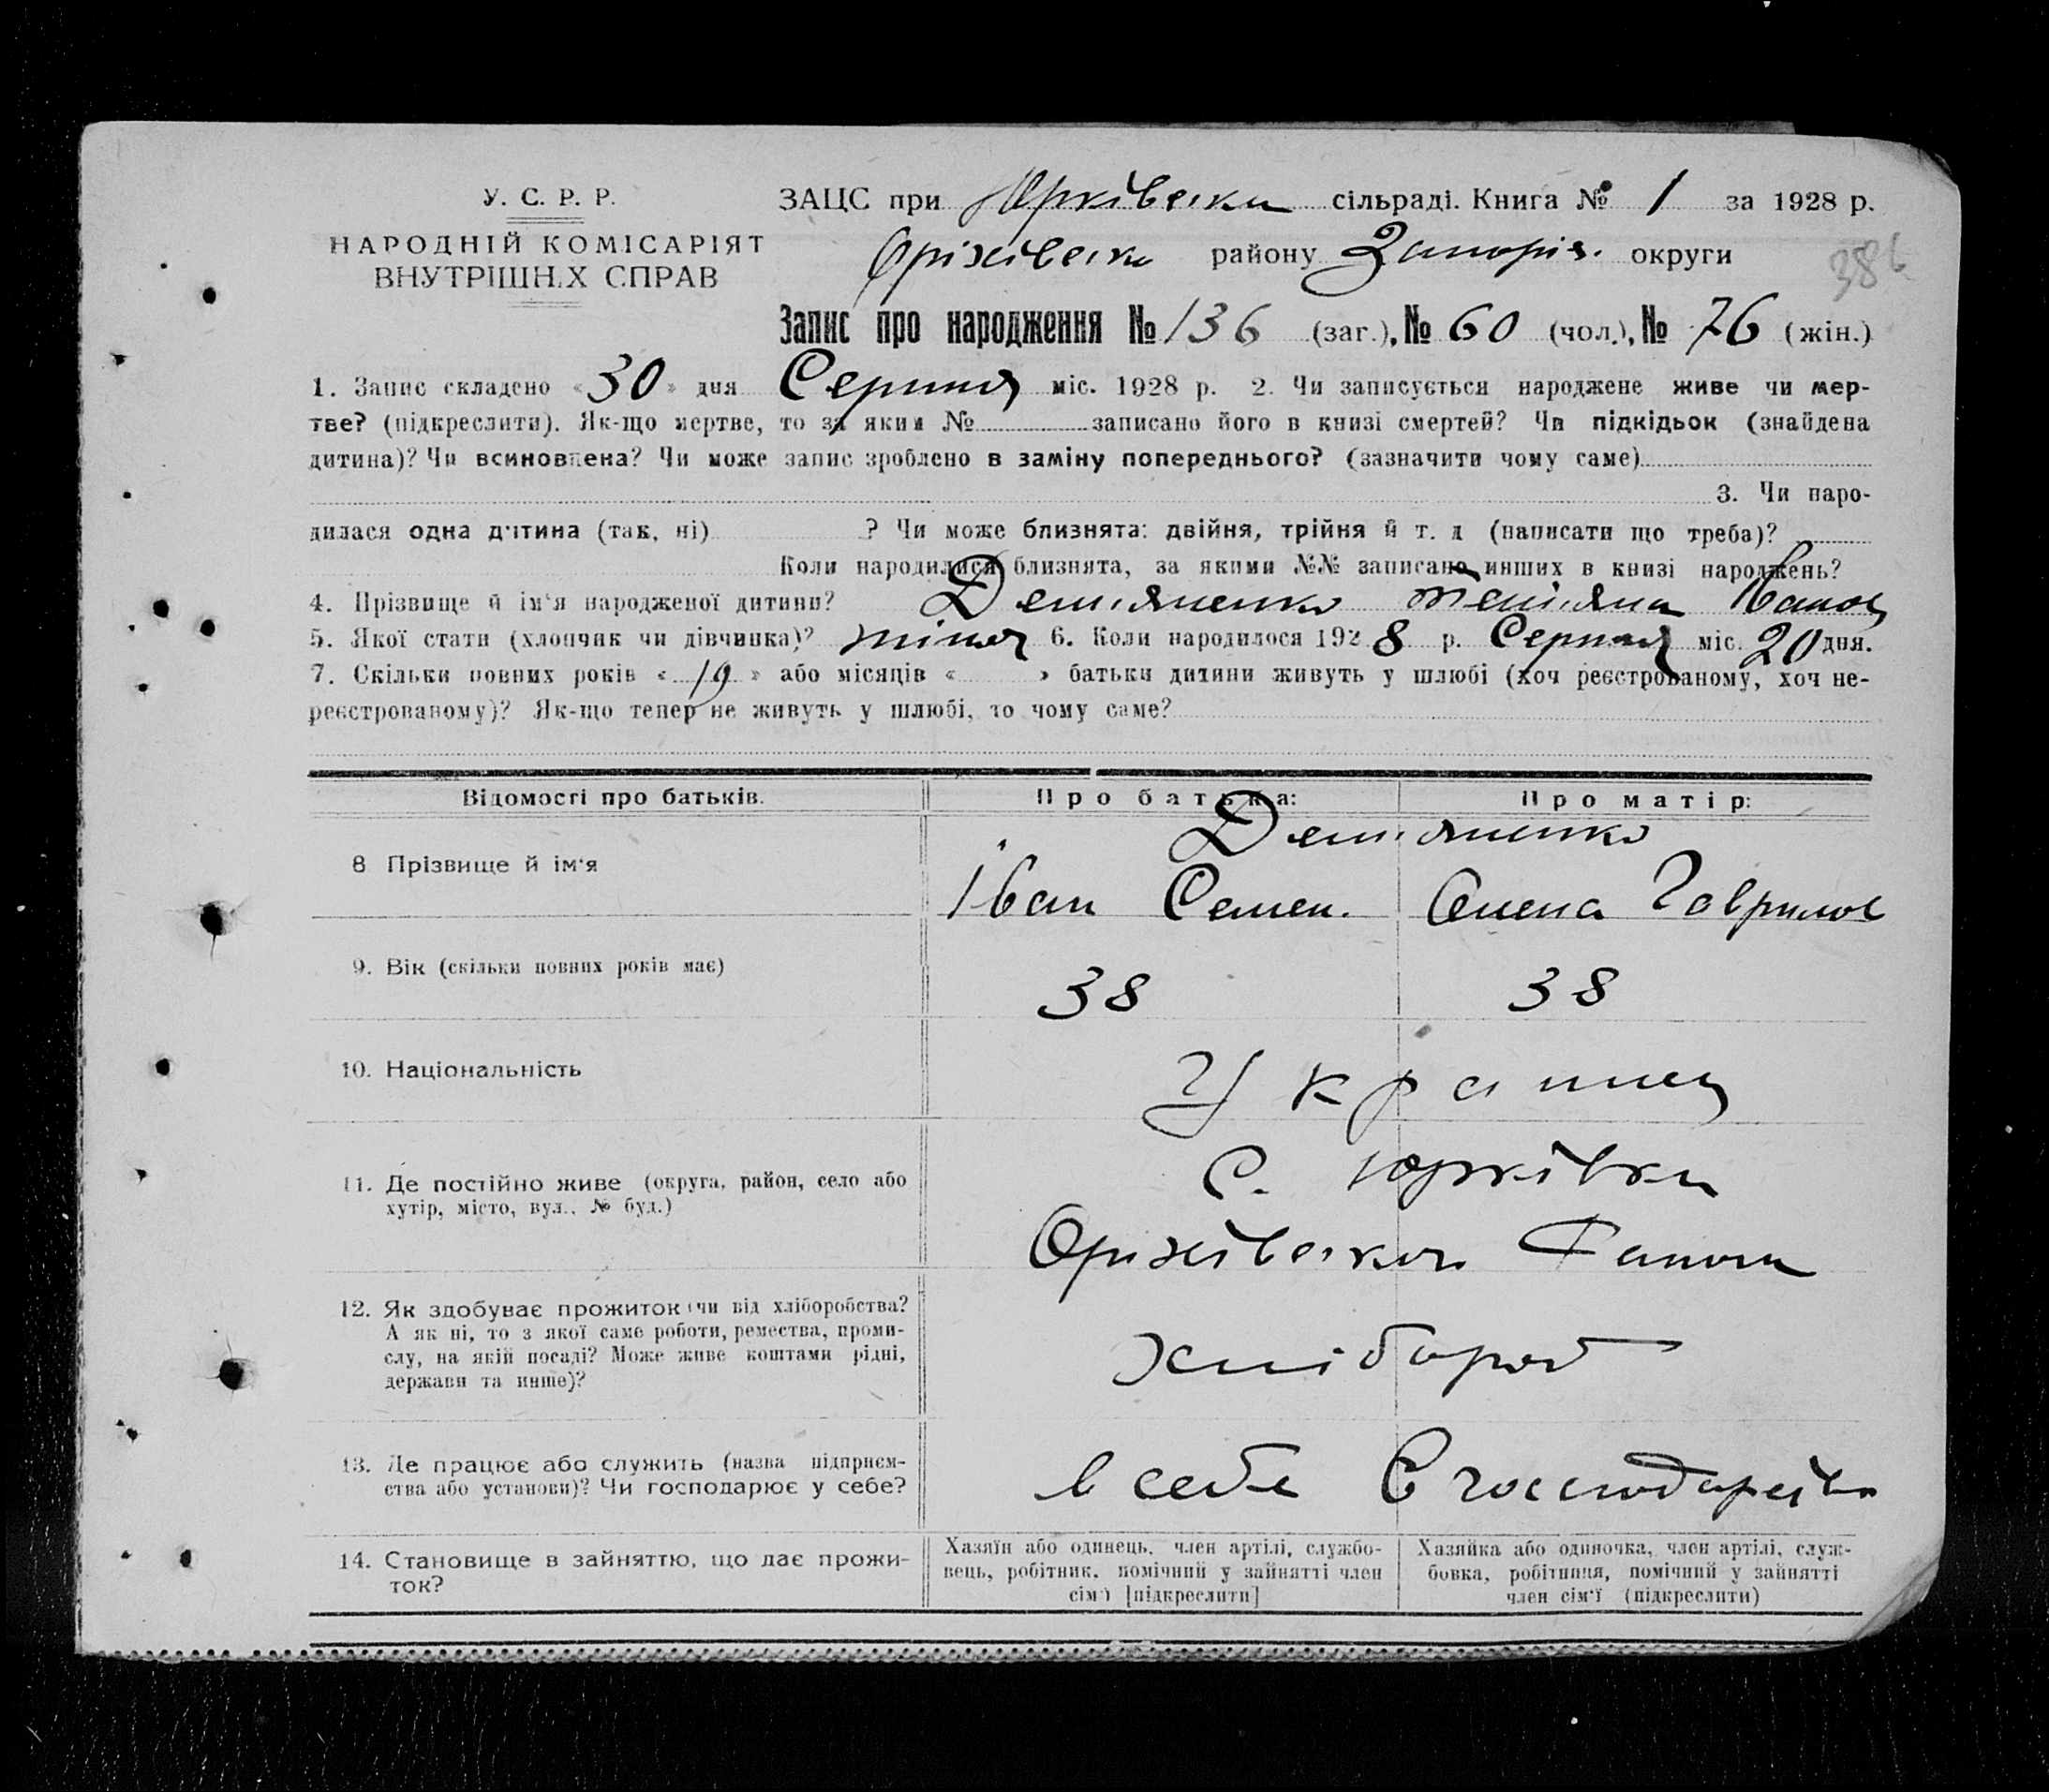 У. С. Р. Р.
НАРОДНІЙ КОМІСАРІЯТ
ВНУТРІШН.Х СПРАВ
ЗАЦС при Юрківски сільраді. Книга № 1 за 1928 р.
Оріхівськ району Запоріз. округи
386
Запис про народження № 136 (заг.), № 60 (чол.), № 76 (жін.)
1. Запис складено «30» дня Серпня міс. 1928 р. 2. Чи записується народжене живе чи мер-
тве? (підкреслити). Як-що мертве, то за яким № записано його в книзі смертей? Чи підкідьок (знайдена
дитина)? Чи всиновлена? Чи може запис зроблено в заміну попереднього? (зазначити чому саме)
3. Чи наро-
дилася одна дитина (так, ні) ? Чи може близнята: двійня, трійня й т. д (написати що треба)?
Коли народилися близнята, за якими №№ записано инших в книзі народжень?
4. Прізвище й ім'я народженої дитини? Демяненко Тетіяна Іванов
5. Якої статі (хлопчик чи дівчинка)? жіноч 6. Коли народилося 1928 р. Серпня міс. 20 дня.
7. Скільки повних років «19» або місяців « » батьки дитини живуть у шлюбі (хоч реєстрованому, хоч не-
реєстрованому)? Як-що тепер не живуть у шлюбі, то чому саме?
Відомості про батьків. Про батька: Про матір:
Демяненко
8 Прізвище й ім'я Іван Семен. Олена Гаврилов
9. Вік (скільки повних років має) 38 38
10. Національність Украинец
11. Де постійно живе (округа, район, село або
хутір, місто, вул., № буд.)
С. Юрківка
Оріхівського Району
12. Як здобуває прожиток (чи від хліборобства?
А як ні, то з якої саме роботи, ремества, проми-
слу, на якій посаді? Може живе коштами рідні,
держави та инше)?
Хлібороб
13. Де працює або служить (назва підприєм-
ства або установи)? Чи господарює у себе?
в себе В господарстві
14. Становище в зайняттю, що дає прожи-
ток?
Хазяїн або одинець, член артілі, службо-
вець, робітник, помічний у зайнятті член
сім'ї [підкреслити]
Хазяйка або одиночка, член артілі, служ-
бовка, робітниця, помічний у зайнятті
член сім'ї (підкреслити)